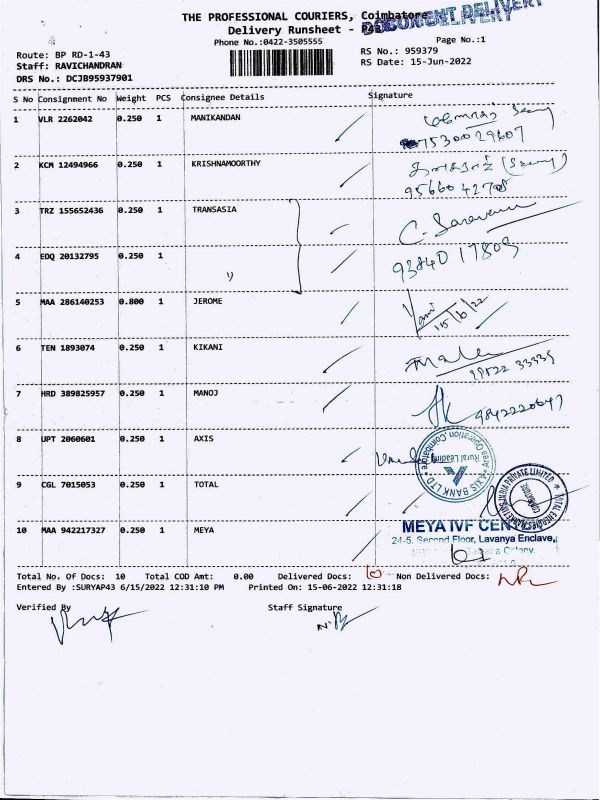 THE PROFESSIONAL COURIERS, Coimbatore
DOCUMENT DELIVERY
Delivery Runsheet - P43
Phone No.:0422-3505555
Page No.:1
Route: BP RD-1-43
RS No.: 959379
Staff: RAVICHANDRAN
RS Date: 15-Jun-2022
DRS No.: DCJB95937901
S No Consignment No Weight PCS Consignee Details Signature
1 VLR 2262042 0.250 1 MANIKANDAN
7530029607
2 KCM 12494966 0.250 1 KRISHNAMOORTHY
95660 42708
3 TRZ 155652436 0.250 1 TRANSASIA
C. Saravanan
4 EDQ 20132795 0.250 1 "
93840 17809
5 MAA 286140253 0.800 1 JEROME
15/6/22
6 TEN 1893074 0.250 1 KIKANI
99522 33339
7 HRD 389825957 0.250 1 MANOJ
9842220647
8 UPT 2060601 0.250 1 AXIS
AXIS BANK LTD
Rural Lending
Area Operation, Coimbatore
9 CGL 7015053 0.250 1 TOTAL
COIMBATORE
10 MAA 942217327 0.250 1 MEYA
MEYA IVF CENTRE
24-5, Second Floor, Lavanya Enclave,
Colony,
Total No. Of Docs: 10 Total COD Amt: 0.00 Delivered Docs: 10 Non Delivered Docs:
Entered By :SURYAP43 6/15/2022 12:31:10 PM Printed On: 15-06-2022 12:31:18
Verified By Staff Signature